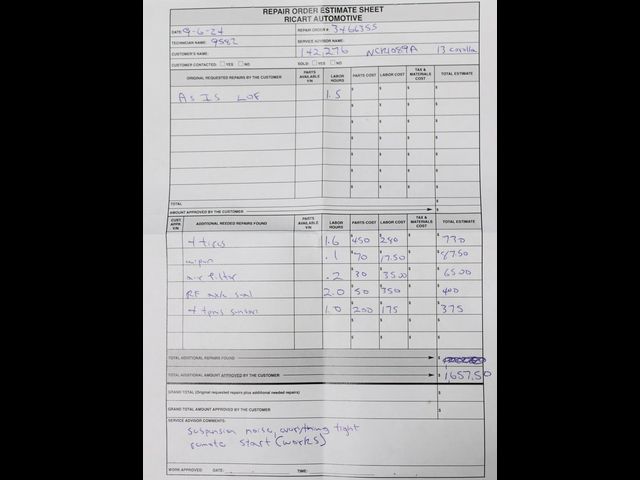 REPAIR ORDER ESTIMATE SHEET
RICART AUTOMOTIVE
DATE: 9-6-24 REPAIR ORDER #: 3466355
TECHNICIAN NAME: 9582 SERVICE ADVISOR NAME:
CUSTOMER'S NAME: 142,276 NCR1089A 13 corolla
CUSTOMER CONTACTED: YES NO SOLD: YES NO
ORIGINAL REQUESTED REPAIRS BY THE CUSTOMER PARTS AVAILABLE Y/N LABOR HOURS PARTS COST LABOR COST TAX & MATERIALS COST TOTAL ESTIMATE
AS IS LOF 1.5 $ $ $ $
TOTAL $
AMOUNT APPROVED BY THE CUSTOMER $
CUST. APPR. Y/N ADDITIONAL NEEDED REPAIRS FOUND PARTS AVAILABLE Y/N LABOR HOURS PARTS COST LABOR COST TAX & MATERIALS COST TOTAL ESTIMATE
4 tires 1.6 $450 $280 $ $730
wipers .1 $70 $17.50 $ $87.50
air filter .2 $30 $35.00 $ $65.00
RF axle seal 2.0 $50 $350 $ $400
4 tpms sensors 1.0 $200 $175 $ $375
TOTAL ADDITIONAL REPAIRS FOUND $
TOTAL ADDITIONAL AMOUNT APPROVED BY THE CUSTOMER $1,657.50
GRAND TOTAL (Original requested repairs plus additional needed repairs) $
GRAND TOTAL AMOUNT APPROVED BY THE CUSTOMER $
SERVICE ADVISOR COMMENTS:
suspension noise, everything tight
remote start (works)
WORK APPROVED: DATE: TIME: